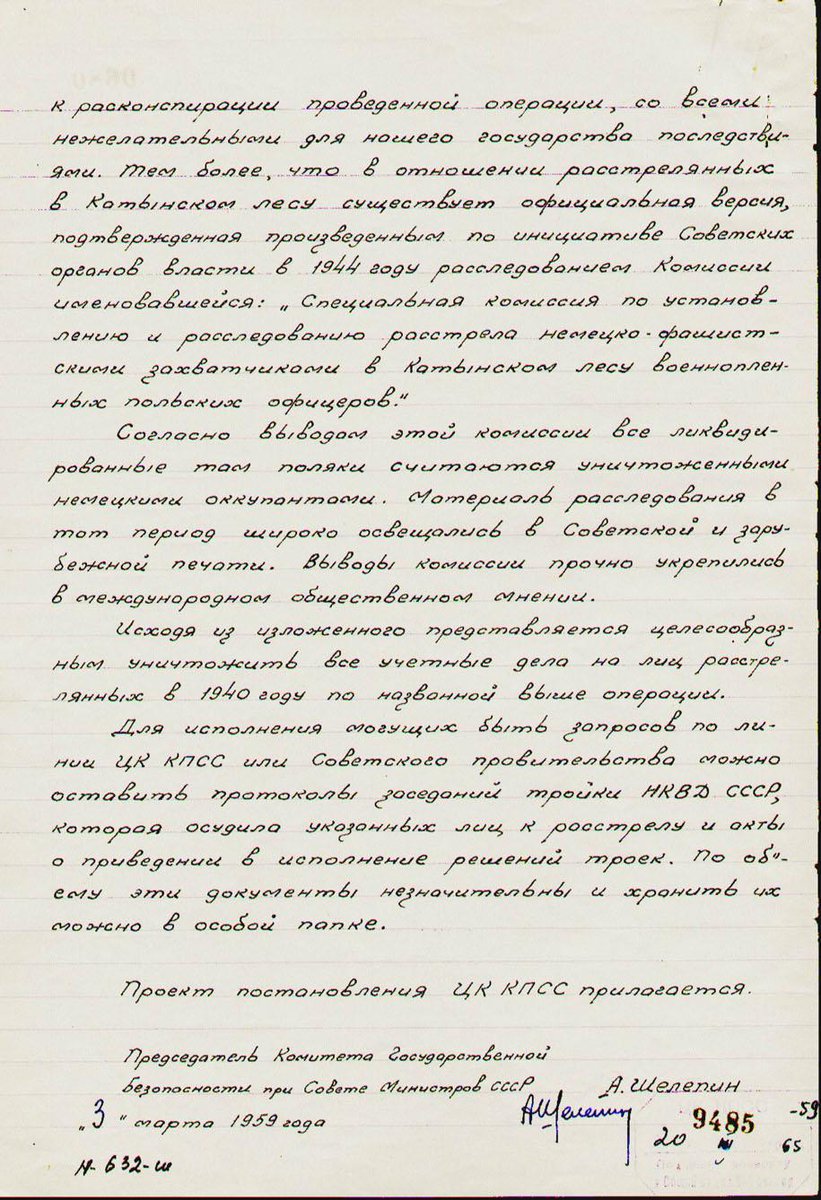 к расконспирации проведенной операции, со всеми
нежелательными для нашего государства последстви-
ями. Тем более, что в отношении расстрелянных
в Катынском лесу существует официальная версия,
подтвержденная произведенным по инициативе Советских
органов власти в 1944 году расследованием Комиссии
именовавшейся: „Специальная комиссия по установ-
лению и расследованию расстрела немецко-фашист-
скими захватчиками в Катынском лесу военноплен-
ных польских офицеров."
Согласно выводам этой комиссии все ликвиди-
рованные там поляки считаются уничтоженными
немецкими оккупантами. Материалы расследования в
тот период широко освещались в Советской и зару-
бежной печати. Выводы комиссии прочно укрепились
в международном общественном мнении.
Исходя из изложенного представляется целесообраз-
ным уничтожить все учетные дела на лиц расстре-
лянных в 1940 году по названной выше операции.
Для исполнения могущих быть запросов по ли-
нии ЦК КПСС или Советского правительства можно
оставить протоколы заседаний тройки НКВД СССР,
которая осудила указанных лиц к расстрелу и акты
о приведении в исполнение решений троек. По об"-
ему эти документы незначительны и хранить их
можно в особой папке.
Проект постановления ЦК КПСС прилагается.
Председатель Комитета Государственной
безопасности при Совете Министров СССР А. Шелепин
„3" марта 1959 года АШелепин 9485 -59
20 III 65
Н-632-ш